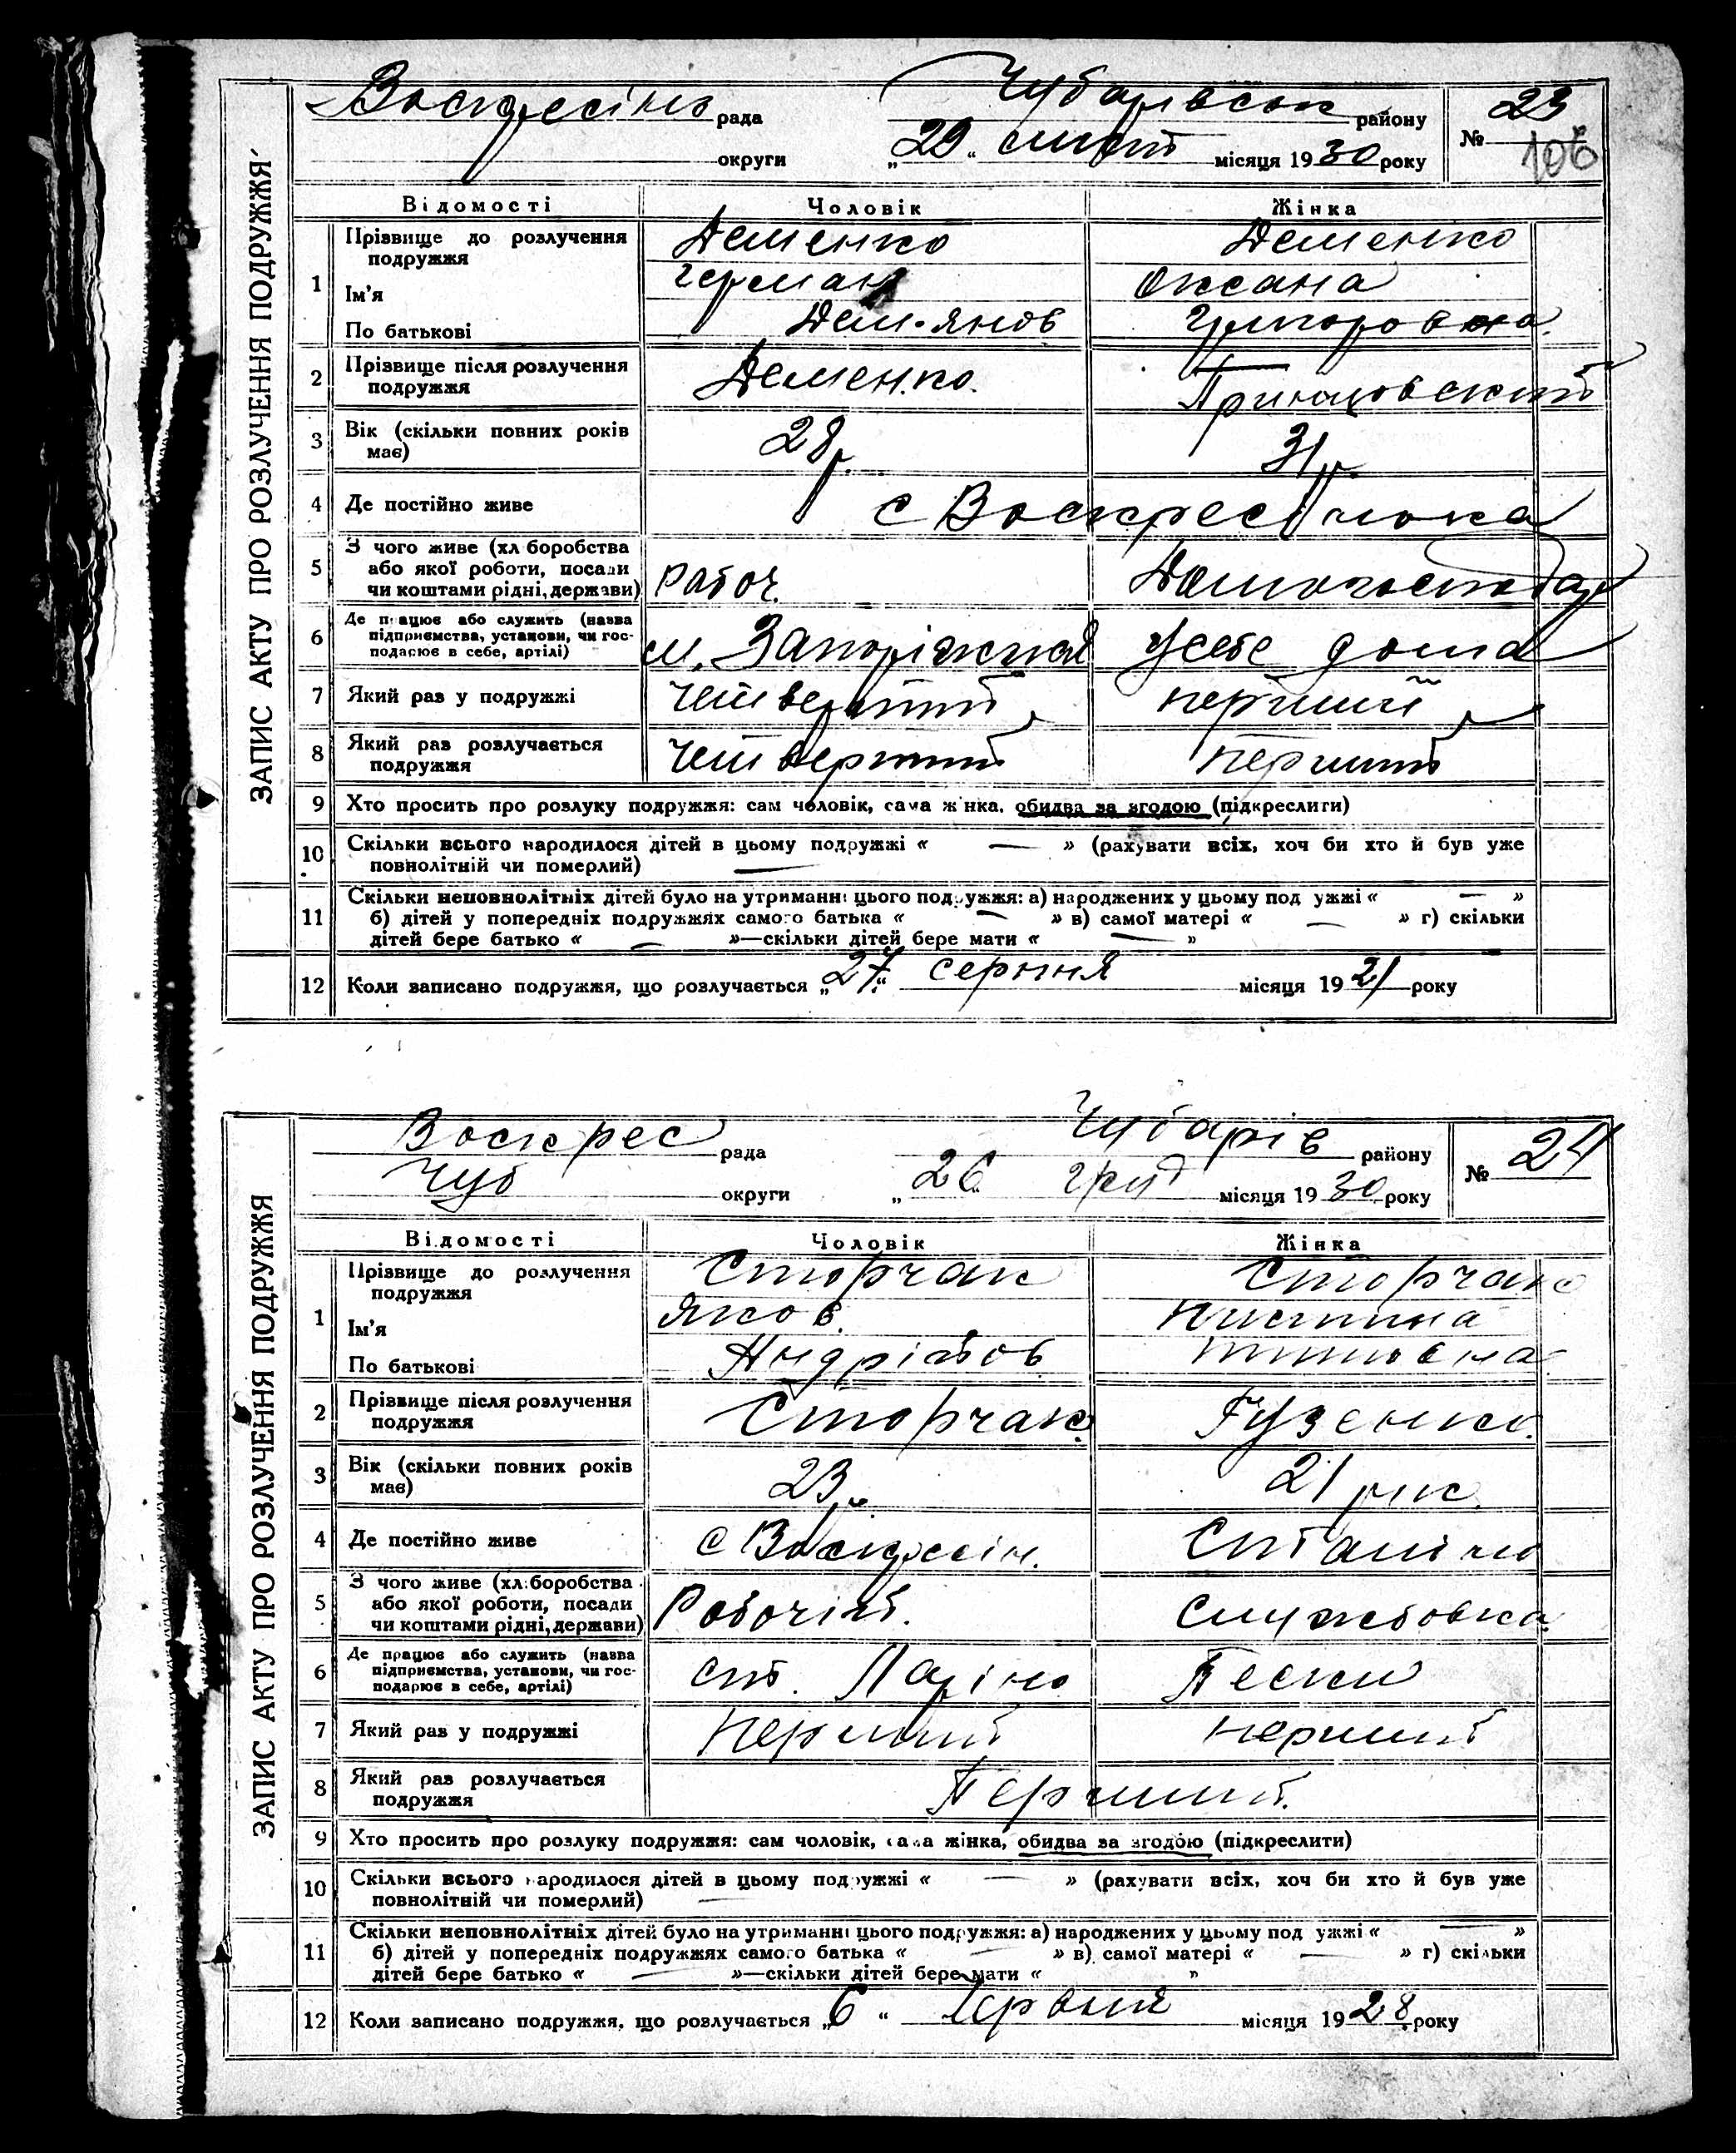 ЗАПИС АКТУ ПРО РОЗЛУЧЕННЯ ПОДРУЖЖЯ
Воскресінс рада Чубарівськ району № 23
106
округи „29“ лист місяця 1930 року
Відомості Чоловік Жінка
1 Прізвище до розлучення подружжя Деменко Деменко
Ім'я Герман Оксана
По батькові Дем'янов Григоровна
2 Прізвище після розлучення подружжя Деменко
3 Вік (скільки повних років має) 28 р. 31 р.
4 Де постійно живе с Воскресінська
5 З чого живе (хл боробства або якої роботи, посади чи коштами рідні, держави) рабоч. Домогосподар
6 Де працює або служить (назва підприємства, установи, чи господарює в себе, артілі) м. Запоріжжя У себе дома
7 Який раз у подружжі четвертий перший
8 Який раз розлучається подружжя четвертий перший
9 Хто просить про розлуку подружжя: сам чоловік, сама жінка, обидва за згодою (підкреслити)
10 Скільки всього народилося дітей в цьому подружжі « — » (рахувати всіх, хоч би хто й був уже
повнолітній чи померлий) —
11 Скільки неповнолітніх дітей було на утриманні цього подружжя: а) народжених у цьому подружжі « — »
б) дітей у попередніх подружжях самого батька « — » в) самої матері « — » г) скільки
дітей бере батько « — »—скільки дітей бере мати « — »
12 Коли записано подружжя, що розлучається „27“ серпня місяця 1921 року
ЗАПИС АКТУ ПРО РОЗЛУЧЕННЯ ПОДРУЖЖЯ
Воскрес рада Чубарів району № 24
Чуб округи „26“ груд місяця 1930 року
Відомості Чоловік Жінка
1 Прізвище до розлучення подружжя Сторчак Сторчак
Ім'я Яков Кистина
По батькові Андрійов Титовна
2 Прізвище після розлучення подружжя Сторчак Гузенко
3 Вік (скільки повних років має) 23 р. 21 рік
4 Де постійно живе с Воскресін. Сталіно
5 З чого живе (хліборобства або якої роботи, посади чи коштами рідні, держави) Робочій. службовка
6 Де працює або служить (назва підприємства, установи, чи господарює в себе, артілі) ст. Ларіно Пески
7 Який раз у подружжі перший перший
8 Який раз розлучається подружжя Перший.
9 Хто просить про розлуку подружжя: сам чоловік, сама жінка, обидва за згодою (підкреслити)
10 Скільки всього народилося дітей в цьому подружжі « — » (рахувати всіх, хоч би хто й був уже
повнолітній чи померлий) —
11 Скільки неповнолітніх дітей було на утриманні цього подружжя: а) народжених у цьому подружжі « — »
б) дітей у попередніх подружжях самого батька « — » в) самої матері « — » г) скільки
дітей бере батько « — »—скільки дітей бере мати « »
12 Коли записано подружжя, що розлучається „6“ Червня місяця 1928 року